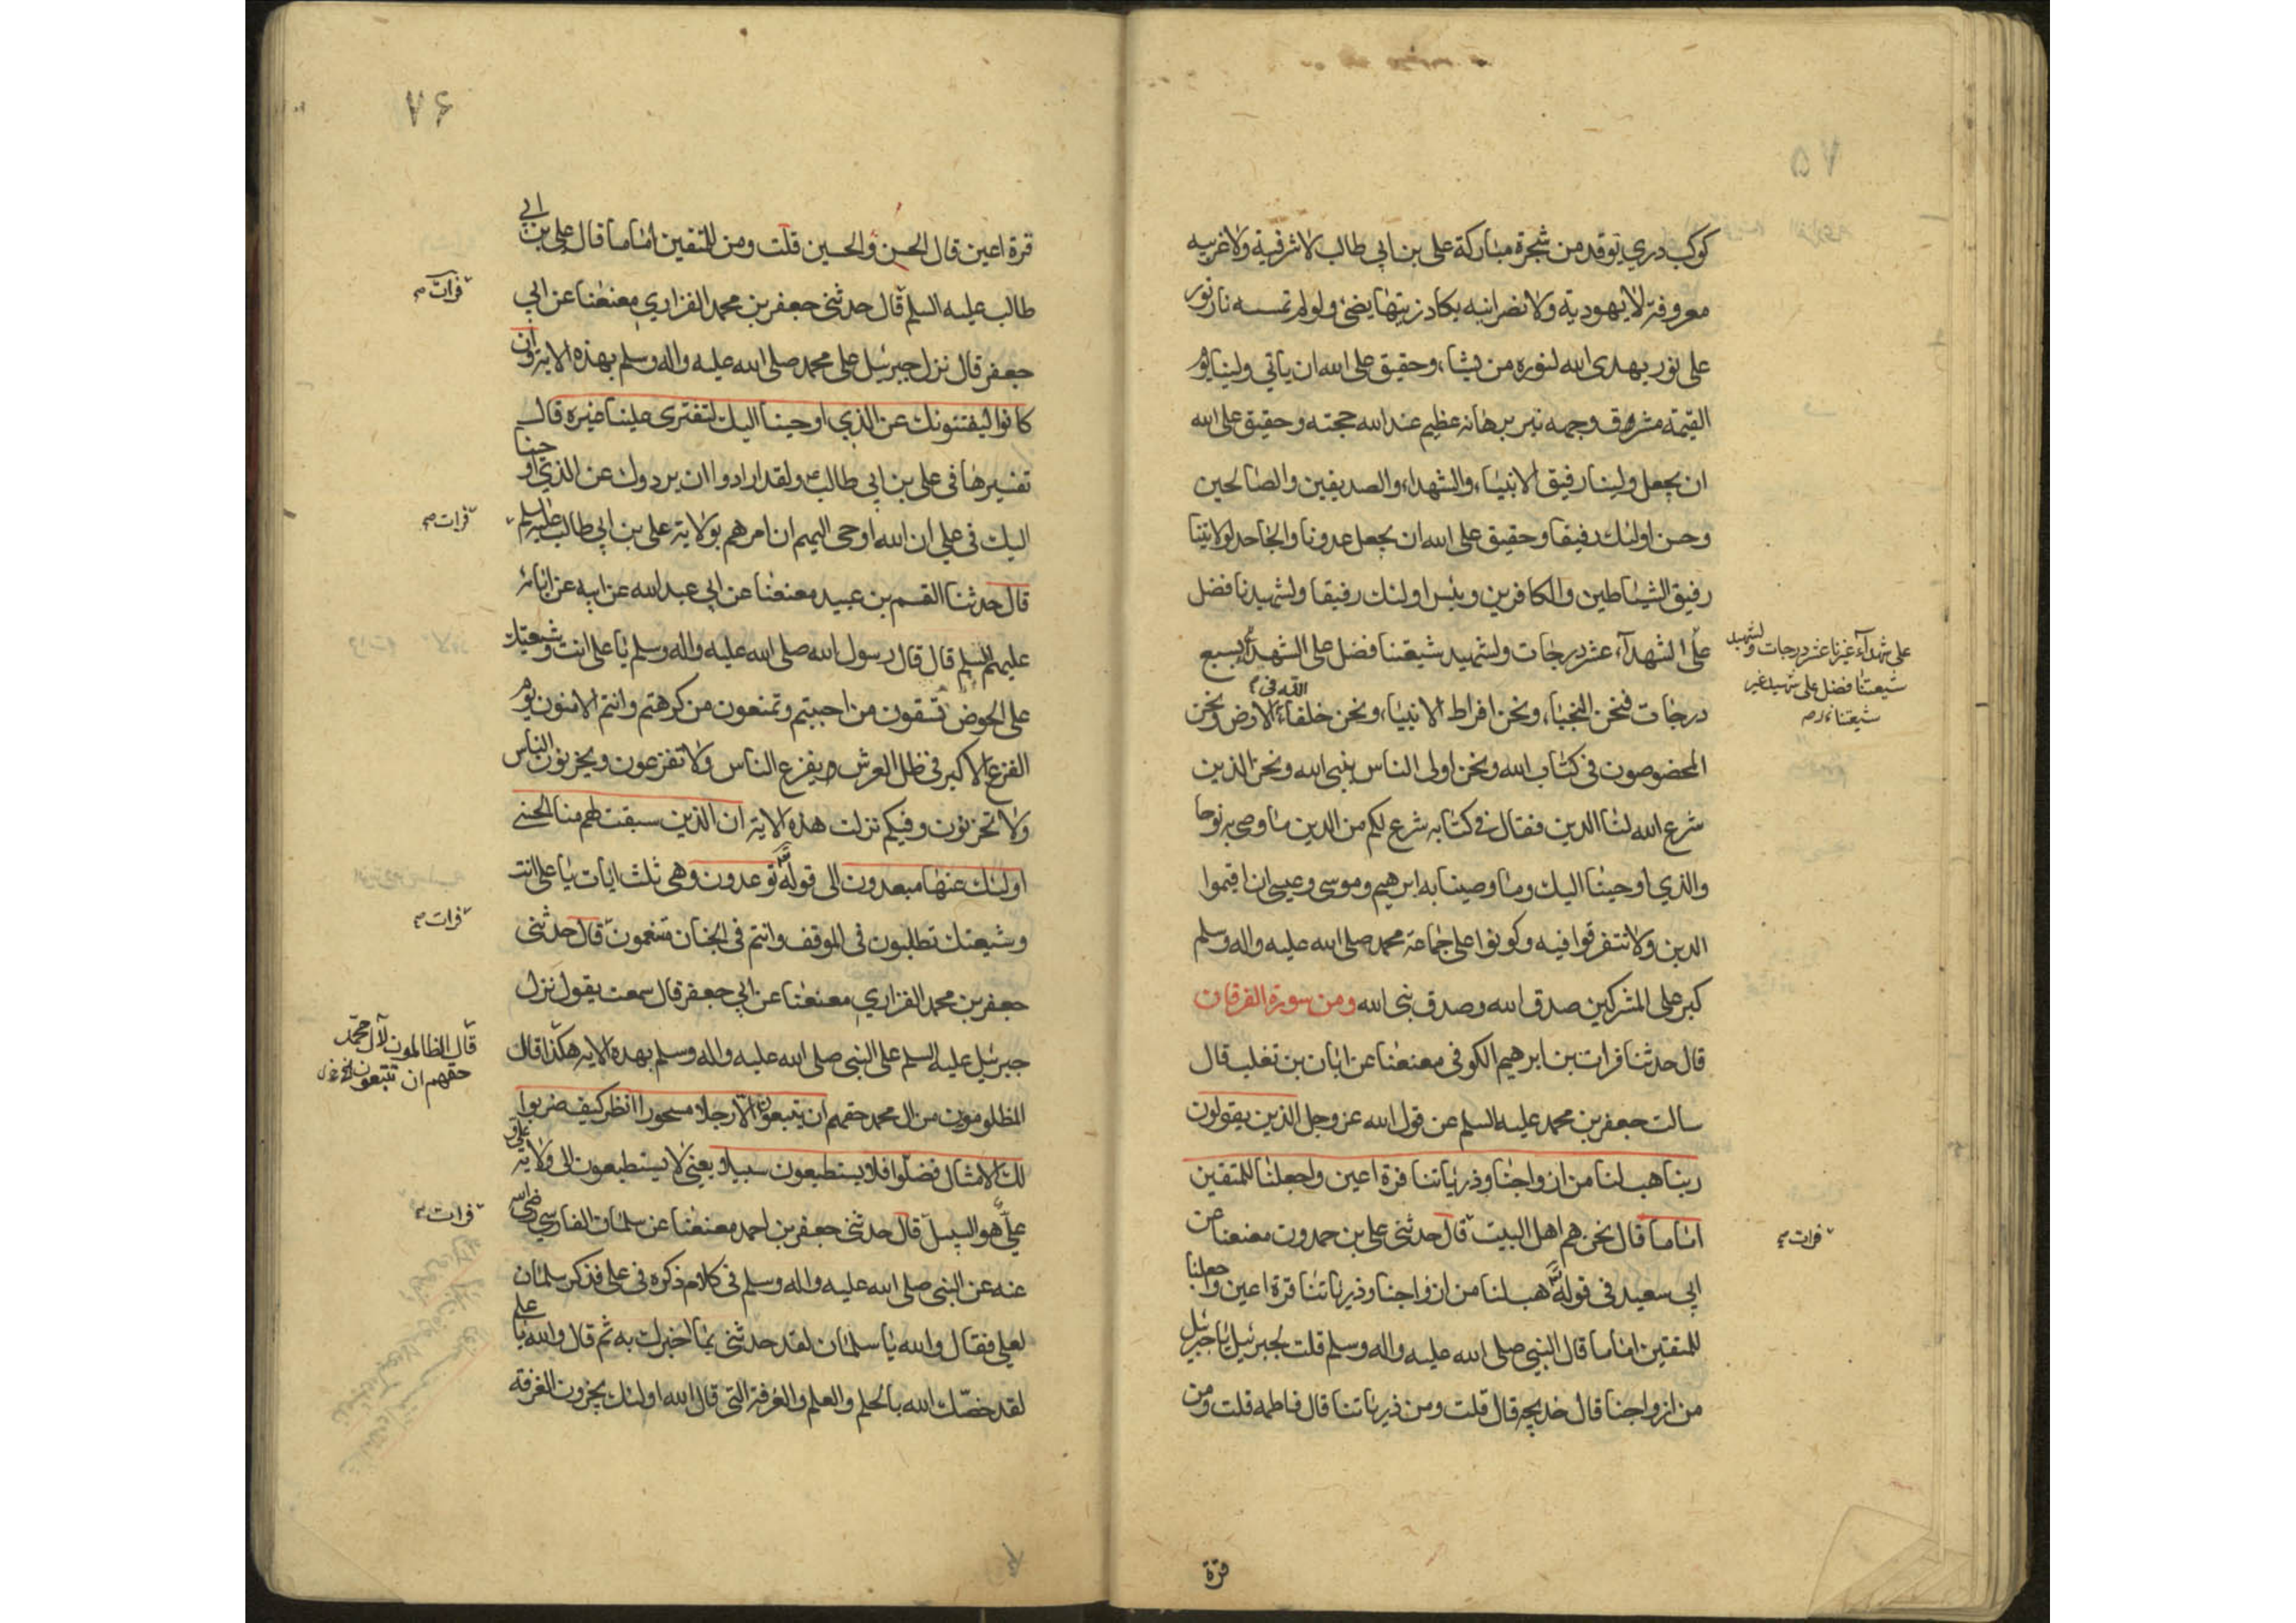 ٧۵
كوكب دري توقد من شجرة مباركة على بن ابي طالب لا شرقية ولا غربيه
معروفة لا يهودية ولا نصرانيه يكاد زيتها يضئ ولو لم تمسسه نار نور
على نور يهدى الله لنوره من يشاء وحقيق على الله ان ياتي ولينا يوم
القيمة مشرق وجهه نير برهانه عظيم عند الله حجته وحقيق على الله
ان يجعل ولينا رفيق الانبياء والشهداء والصديقين والصالحين
وحسن اولئك رفيقا وحقيق على الله ان يجعل عدونا والجاحد لولايتنا
رفيق الشياطين والكافرين وبئس اولئك رفيقا ولشهيدنا فضل
على الشهدآء عشر درجات ولشهيد شيعتنا فضل على الشهداء بسبع
على شهدآء غيرنا عشر درجات ولشهيد
شيعتنا فضل على شهيد غير
شيعتنا
درجات فنحن النجباء ونحن افراط الانبياء ونحن خلفاء الله فى الارض ونحن
المخصوصون فى كتاب الله ونحن اولى الناس بنبى الله ونحن الذين
شرع الله لنا الدين فقال فى كتابه شرع لكم من الدين ما وصى به نوحا
والذي اوحينا اليك وما وصينا به ابرهيم وموسى وعيسى ان اقيموا
الدين ولا تتفرقوا فيه وكونوا على جماعة محمد صلى الله عليه واله وسلم
كبر على المشركين صدق الله وصدق نبى الله ومن سورة الفرقان
قال حدثنا فرات بن ابرهيم الكوفى معنعنا عن ابان بن تغلب قال
سالت جعفر بن محمد عليه السلم عن قول الله عز وجل الذين يقولون
ربنا هب لنا من ازواجنا وذرياتنا قرة اعين واجعلنا للمتقين
اماما قال نحن هم اهل البيت قال حدثنى على بن حمدون معنعنا عن
فرات
ابي سعيد فى قوله تع هب لنا من ازواجنا وذرياتنا قرة اعين واجعلنا
للمتقين اماما قال النبي صلى الله عليه واله وسلم قلت لجبرئيل يا جبرئيل
من ازواجنا قال خديجه قال قلت ومن ذرياتنا قال فاطمه قلت ومن
قرة
٧۶
قرة اعين قال الحسن والحسين قلت ومن للمتقين اماما قال على بن ابي
طالب عليه السلم قال حدثنى جعفر بن محمد الفزاري معنعنا عن ابي
فرات
جعفر قال نزل جبرئيل على محمد صلى الله عليه واله وسلم بهذه الاية وان
كانوا ليفتنونك عن الذي اوحينا اليك لتفترى علينا غيره قال
تفسيرها فى على بن ابي طالب ولقد ارادوا ان يردوك عن الذي اوحينا
اليك فى علي ان الله اوحى اليهم ان امرهم بولاية على بن ابي طالب عليه السلم
فرات
قال حدثنا القسم بن عبيد معنعنا عن ابي عبد الله عن ابيه عن ابائه
عليهم السلم قال قال رسول الله صلى الله عليه واله وسلم يا على انت وشيعتك
على الحوض تسقون من احببتم وتمنعون من كرهتم وانتم الامنون يوم
الفزع الاكبر فى ظل العرش ويفزع الناس ولا تفزعون ويحزنون الناس
ولا تحزنون وفيكم نزلت هذه الاية ان الذين سبقت لهم منا الحسنى
اولئك عنها مبعدون الى قوله تع توعدون وهى ثلث ايات يا على انت
وشيعتك تطلبون فى الموقف وانتم فى الجنان متنعمون قال حدثنى
فرات
جعفر بن محمد الفزاري معنعنا عن ابي جعفر قال سمعت يقول نزل
جبرئيل عليه السلم على النبى صلى الله عليه واله وسلم بهذه الايه هكذا قال
قال الظالمون لآل محمد
حقهم ان تتبعون
المظلومون من ال محمد حقهم ان يتبعون الا رجلا مسحورا انظر كيف ضربوا
لك الامثال فضلوا فلا يستطيعون سبيلا يعنى لا يستطيعون الى ولاية على و
علي هو السبيل قال حدثنى جعفر بن احمد معنعنا عن سلمان الفارسي رضى الله
فرات
عنه عن النبى صلى الله عليه واله وسلم فى كلام ذكره فى على فذكر سلمان
لعلي فقال والله يا سلمان لقد حدثنى بما اخبرك به ثم قال والله يا على
لقد خصّك الله بالحلم والعلم والغرفة التى قال الله اولئك يجزون الغرفة